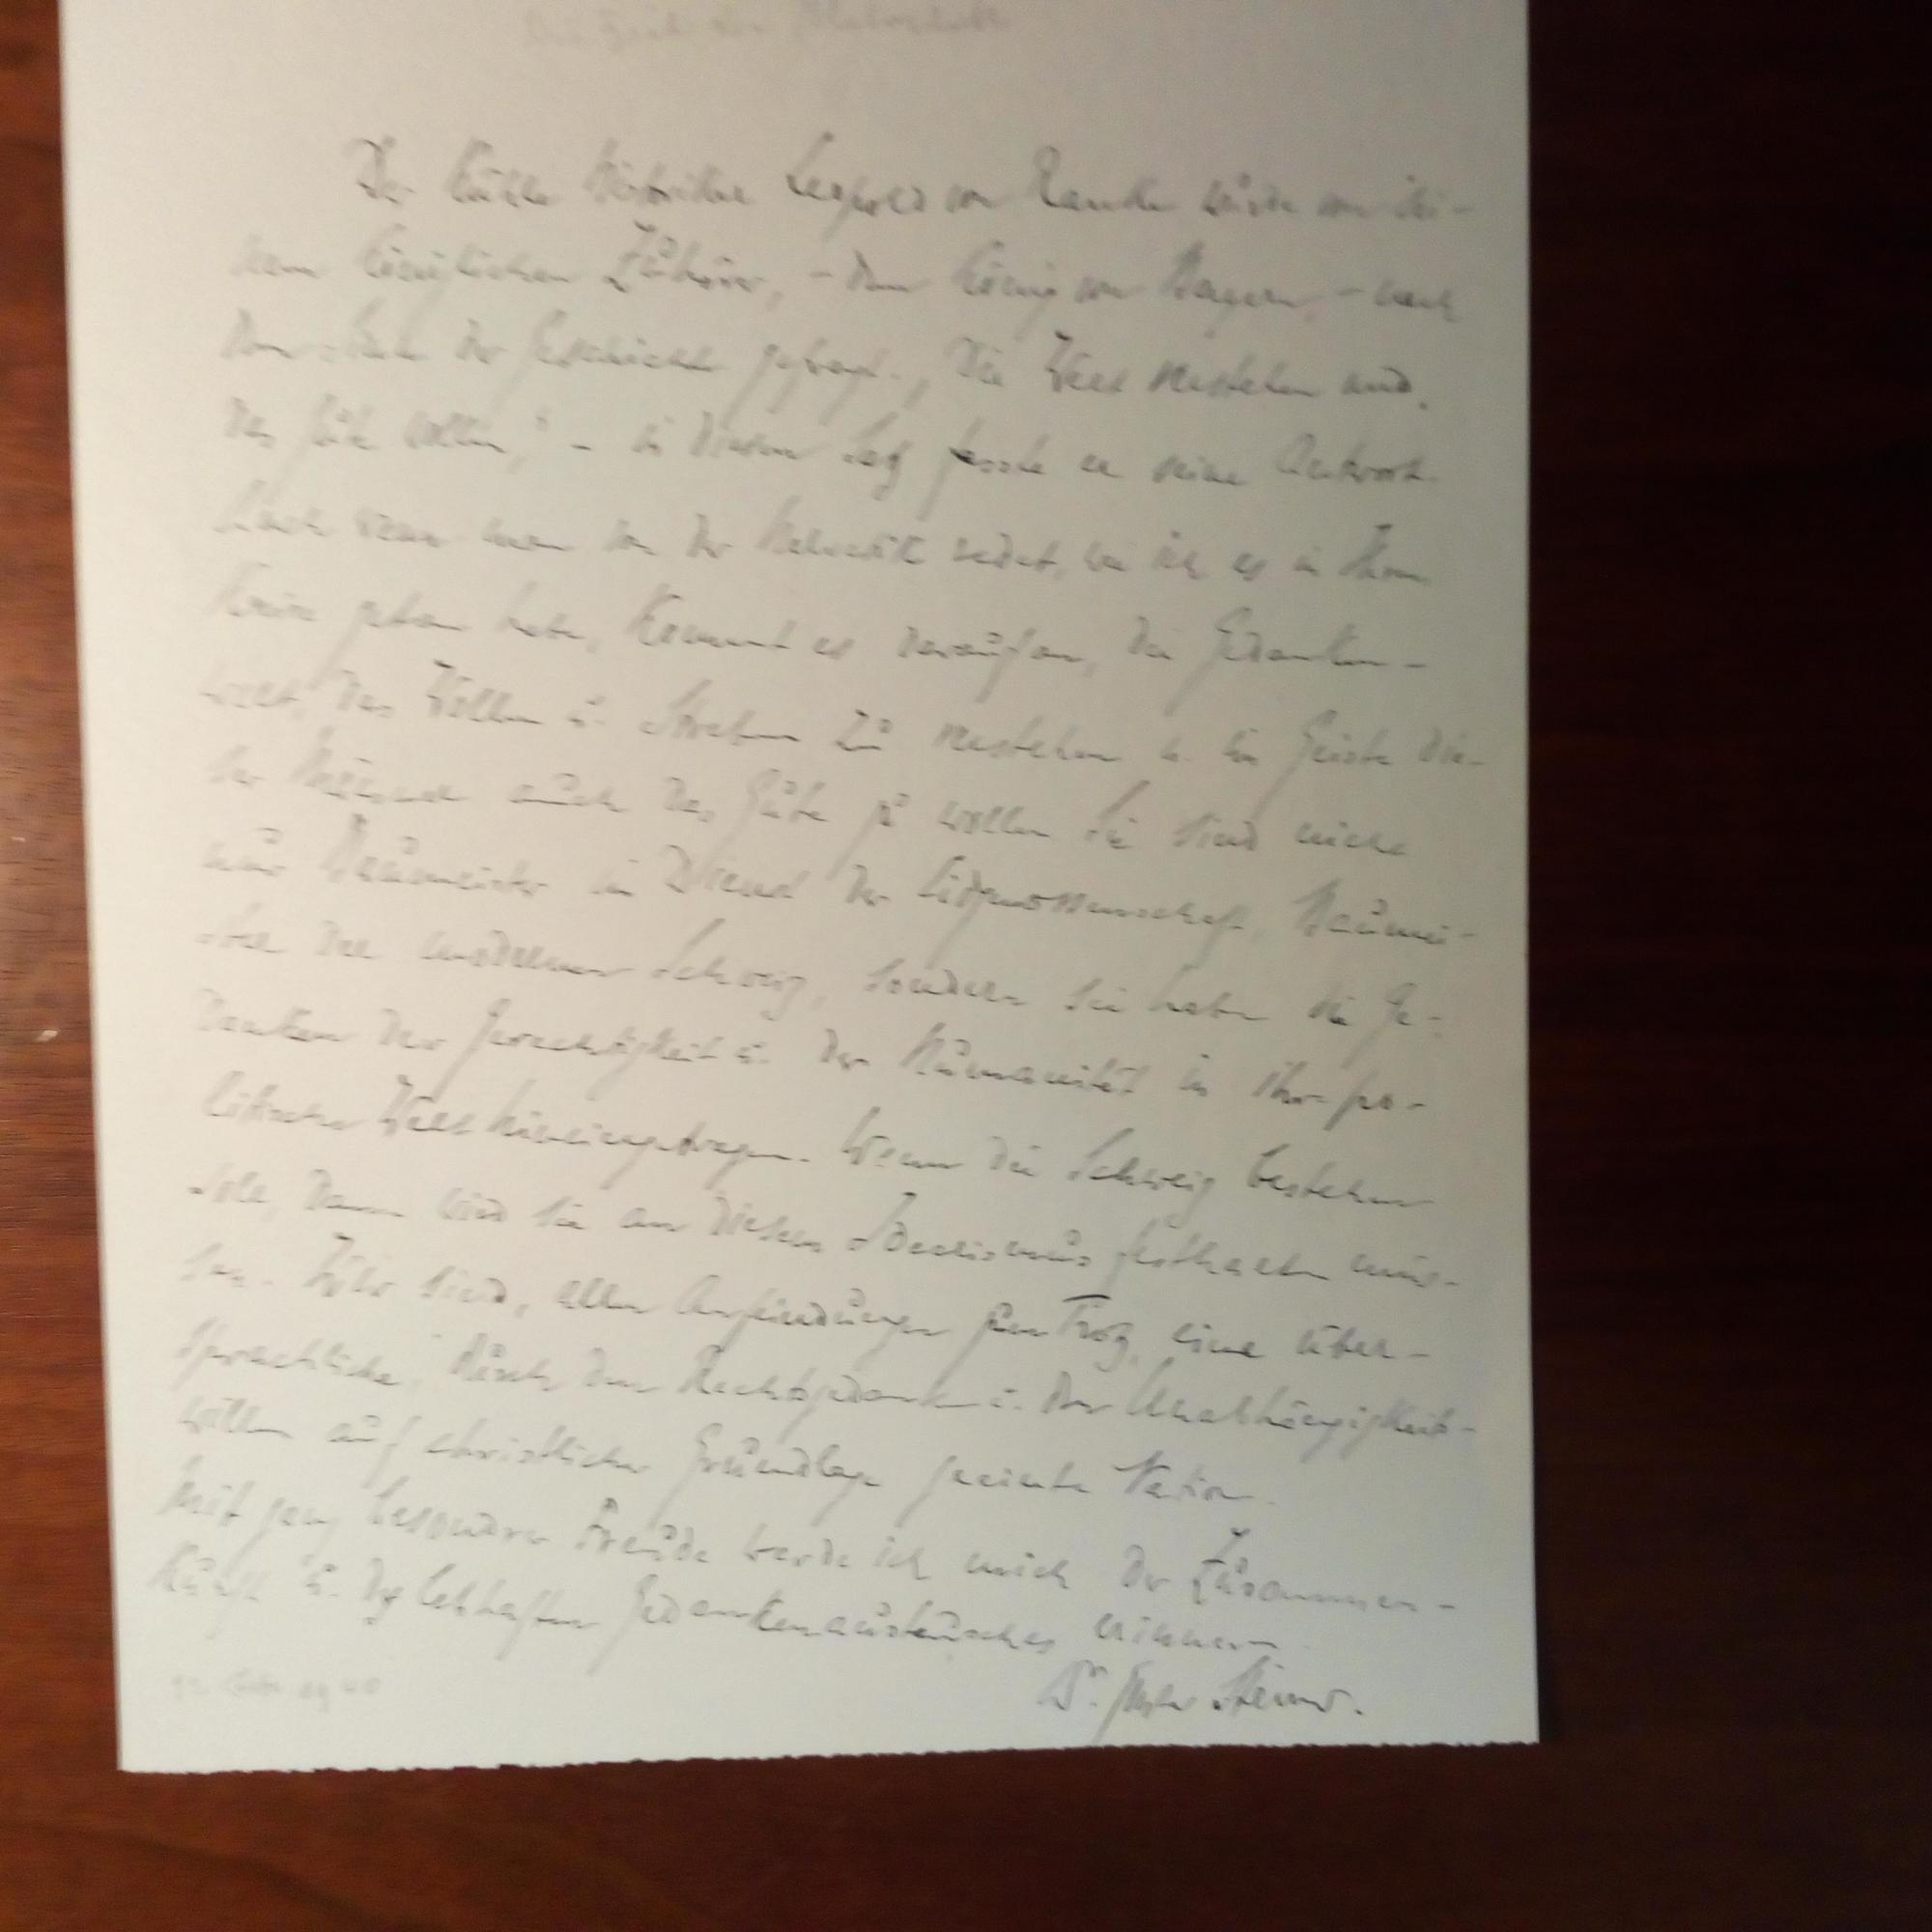 Der Historiker Leopold von Ranke wurde von sei-
nem königlichen Zuhörer, – dem König von Bayern, – nach
dem der Geschichte gefragt. „Die Welt verstehen und
das Gute wollen," – in diesen Satz fasste er seine Antwort.
Auch wenn man von der Helvetik redet, wie ich es in Ihrem
Kreise getan habe, kommt es darauf an, die Gedanken-
welt, das Wollen u. Streben zu verstehen u. im Geiste die-
ser Männer auch das Gute zu wollen. Sie sind nicht
nur Baumeister im Dienst der Eidgenossenschaft, Baumei-
ster der modernen Schweiz, sondern sie haben die Ge-
danken der Gerechtigkeit u. der Humanität in ihre po-
litische Welt hineingetragen. Wenn die Schweiz bestehen
soll, dann wird sie an diesem Idealismus festhalten müs-
sen. Wir sind, allen Anfeindungen zum Trotz, eine über-
sprachliche, durch den Rechtsgedanken u. den Unabhängigkeits-
willen auf christlicher Grundlage geeinte Nation.
Mit ganz besonderer Freude werde ich mich der Zusammen-
kunft u. des lebhaften Gedankenaustausches erinnern.
Dr. Steiner.